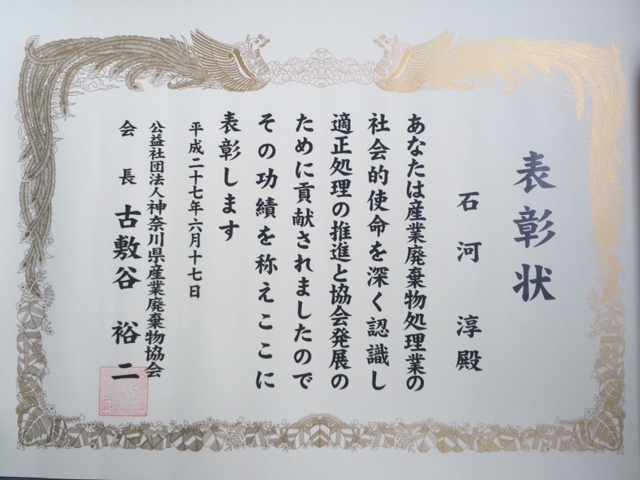 表彰状
石河 淳殿
あなたは産業廃棄物処理業の
社会的使命を深く認識し
適正処理の推進と協会発展の
ために貢献されましたので
その功績を称えここに
表彰します
平成二十七年六月十七日
公益社団法人神奈川県産業廃棄物協会
会長 古敷谷 裕二